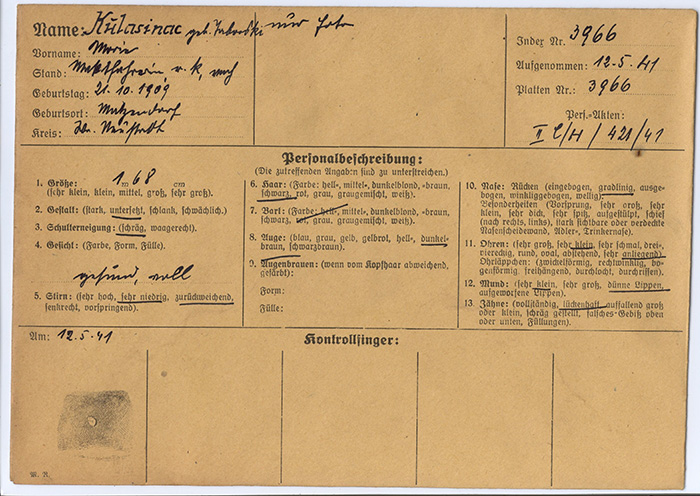 Name: Kulasinac geb. nur Foto
Vorname: Marie
Stand: r. k., 
Geburtstag: 21. 10. 1909
Geburtsort: Matzendorf
Kreis: Wr. Neustadt
Index Nr. 3966
Aufgenommen: 12.5.41
Platten Nr.: 3966
Pers.-Akten:
II C/H / 421/41
Personalbeschreibung:
(Die zutreffenden Angaben sind zu unterstreichen.)
1. Größe: 1 m 68 cm
(sehr klein, klein, mittel, groß, sehr groß).
2. Gestalt: (stark, untersetzt, schlank, schwächlich).
3. Schulterneigung: (schräg, waagerecht).
4. Gesicht: (Farbe, Form, Fülle).
gesund, voll
5. Stirn: (sehr hoch, sehr niedrig, zurückweichend,
senkrecht, vorspringend).
6. Haar: (Farbe: hell-, mittel-, dunkelblond, -braun,
schwarz, rot, grau, graugemischt, weiß).
7. Bart: (Farbe: hell-, mittel-, dunkelblond, -braun,
schwarz, rot, grau, graugemischt, weiß).
8. Auge: (blau, grau, gelb, gelbrot, hell-, dunkel-
braun, schwarzbraun).
9. Augenbrauen: (wenn vom Kopfhaar abweichend,
gefärbt):
Form:
Fülle:
10. Nase: Rücken (eingebogen, gradlinig, ausge-
bogen, winkliggebogen, wellig):
Besonderheiten (Vorsprung, sehr groß, sehr
klein, sehr dick, sehr spitz, aufgestülpt, schief
(nach rechts, links), stark sichtbare oder verdeckte
Nasenscheidewand, Adler-, Trinkernase).
11. Ohren: (sehr groß, sehr klein, sehr schmal, drei-,
viereckig, rund, oval, abstehend, sehr anliegend)
Ohrläppchen: (zwickelförmig, rechtwinklig, bo-
genförmig, freihängend, durchlocht, durchrissen).
12. Mund: (sehr klein, sehr groß, dünne Lippen,
aufgeworfene Lippen).
13. Zähne: (vollständig, lückenhaft, auffallend groß
oder klein, schräg gestellt, falsches Gebiß oben
oder unten, Füllungen).
Am: 12.5.41
Kontrollfinger: